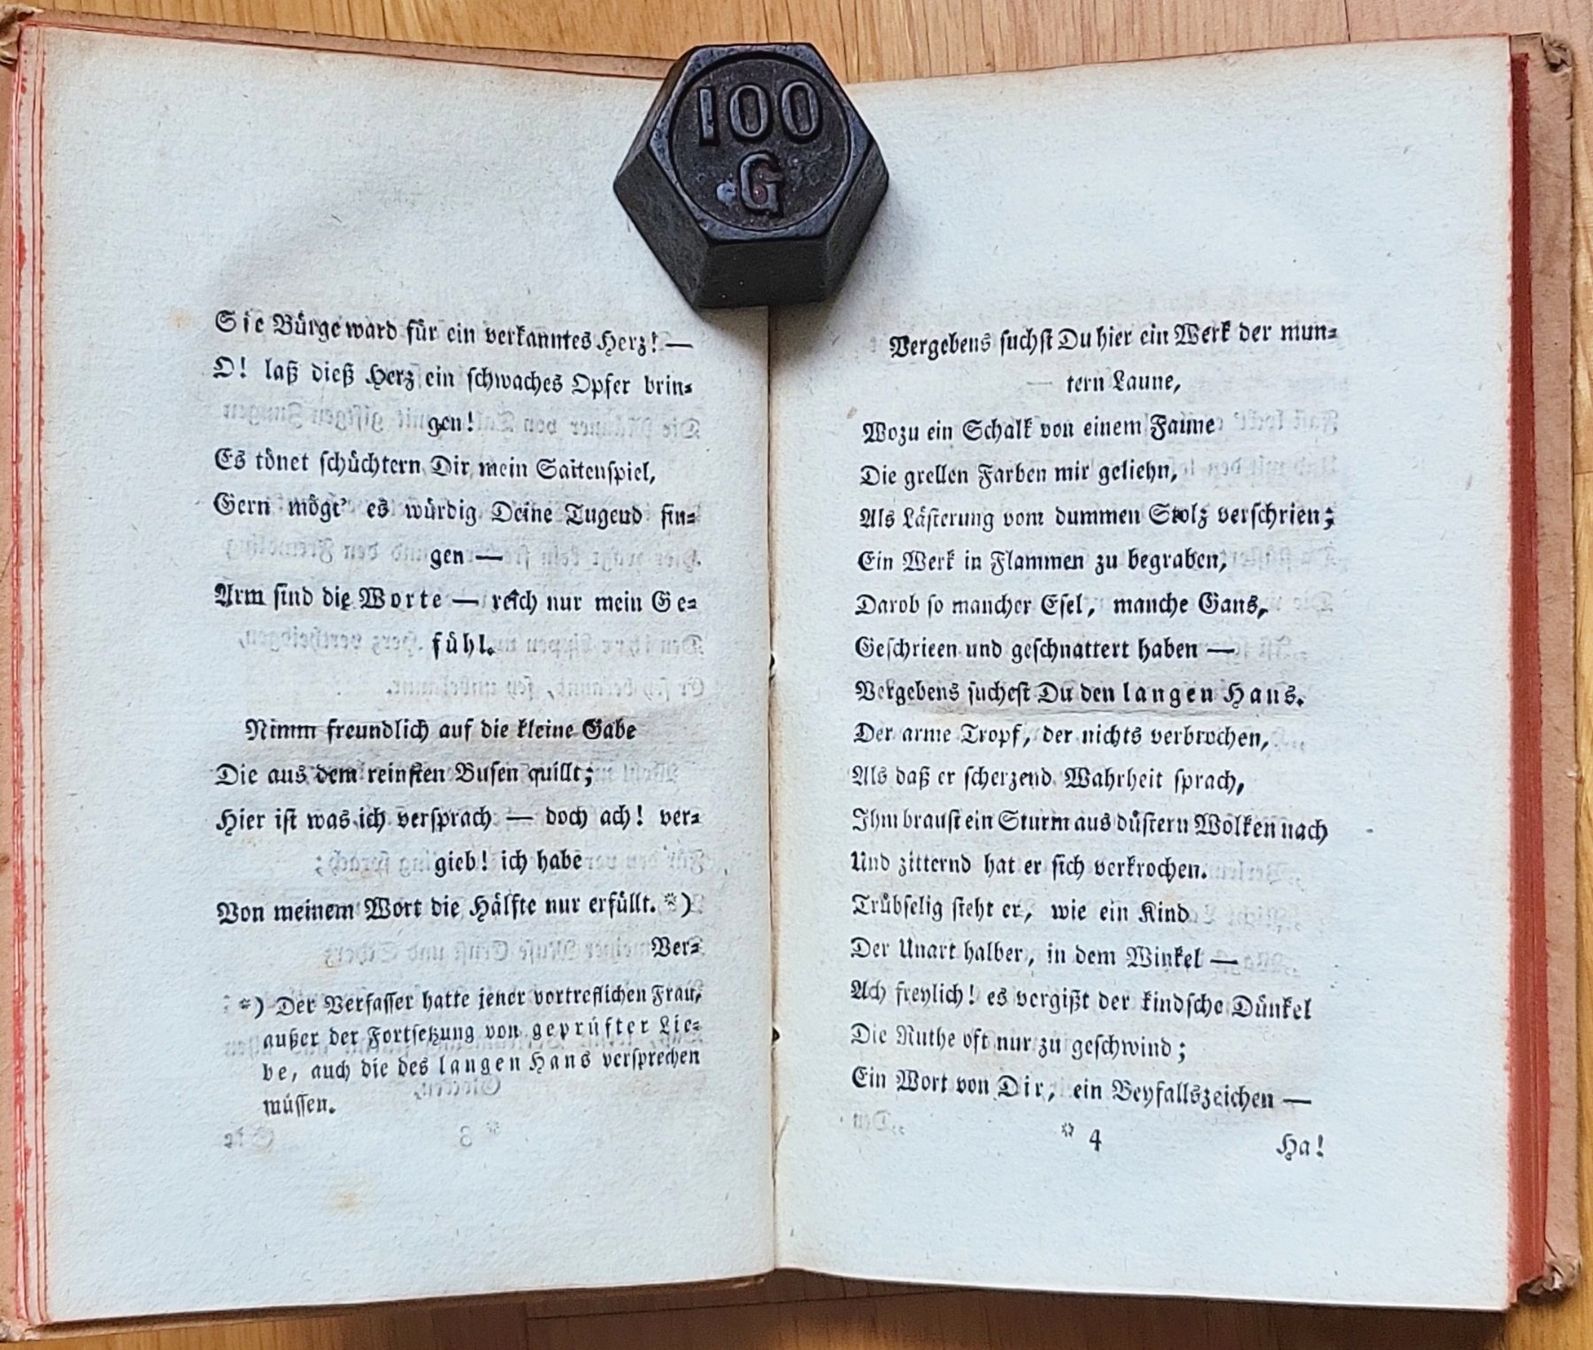 100
G
Sie Bürge ward für ein verkanntes Herz! —
O! laß dieß Herz ein schwaches Opfer brin-
gen!
Es tönet schüchtern Dir mein Saitenspiel,
Gern mögt' es würdig Deine Tugend sin-
gen —
Arm sind die Worte — reich nur mein Ge-
fühl.
Nimm freundlich auf die kleine Gabe
Die aus dem reinsten Busen quillt;
Hier ist was ich versprach — doch ach! ver-
gieb! ich habe
Von meinem Wort die Hälfte nur erfüllt. *)
Ver-
*) Der Verfasser hatte jener vortreflichen Frau,
außer der Fortsetzung von geprüfter Lie-
be, auch die des langen Hans versprechen
müssen.
Vergebens suchst Du hier ein Werk der mun-
tern Laune,
Wozu ein Schalk von einem Faune
Die grellen Farben mir geliehn,
Als Lästerung vom dummen Stolz verschrien;
Ein Werk in Flammen zu begraben,
Darob so mancher Esel, manche Gans,
Geschrieen und geschnattert haben —
Vergebens suchest Du den langen Hans.
Der arme Tropf, der nichts verbrochen,
Als daß er scherzend Wahrheit sprach,
Ihm braust ein Sturm aus düstern Wolken nach
Und zitternd hat er sich verkrochen.
Trübselig steht er, wie ein Kind
Der Unart halber, in dem Winkel —
Ach freylich! es vergißt der kindsche Dünkel
Die Ruthe oft nur zu geschwind;
Ein Wort von Dir, ein Beyfallszeichen —
* 4
Ha!